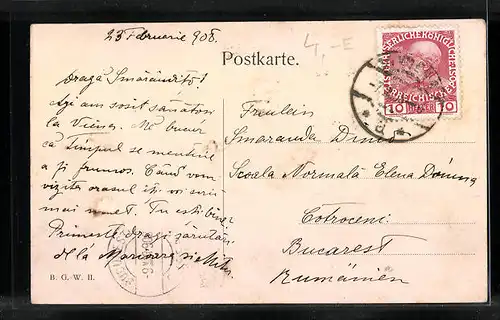 23 Februarie 908.
4,-E
Postkarte.
Dragă Smărăndiță!
Azi am sosit sănătoși
la Viena. Mă bucur
că timpul se menține
a fi frumos. Când vom
vizita orașul îți voi scrie
mai mult. Tu ești bine?
Primește dragi sărutări
de la Marioara și Mitu
B. G. W. II.
KAISERLICHE KÖNIGLICHE
ÖSTERREICHISCHE POST
10 HELLER 10
Freulein
Smaranda
Scoala Normală Elena Domna
Cotroceni
Bucarest
Rumänien